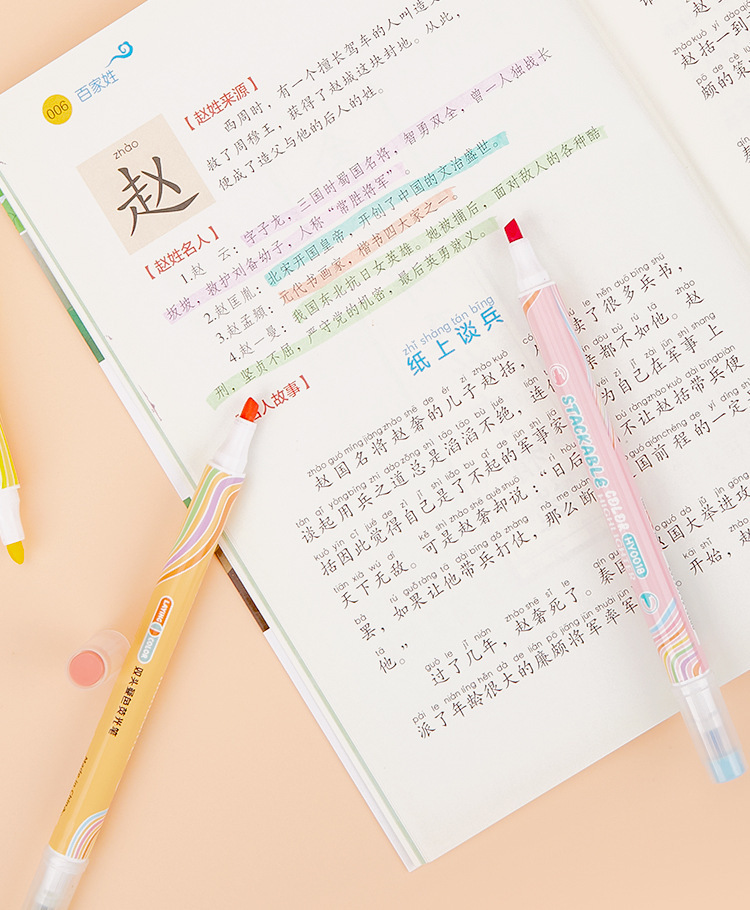 006 百家姓
zhào
赵
【赵姓来源】
西周时，有一个擅长驾车的人叫造
救了周穆王，获得了赵城这块封地。从此，
便成了造父与他的后人的姓。
【赵姓名人】
1.赵 云：字子龙，三国时蜀国名将，智勇双全，曾一人独战长
坂坡，救护刘备幼子，人称“常胜将军”。
2.赵匡胤：北宋开国皇帝，开创了中国的文治盛世。
3.赵孟頫：元代书画家，楷书四大家之一。
4.赵一曼：我国东北抗日女英雄。她被捕后，面对敌人的各种酷
刑，坚贞不屈，严守党的机密，最后英勇就义。
名人故事】
zhǐ shàng tán bīng
纸上谈兵
zhào guó míng jiàng zhào shē de ér zi zhào kuò
赵国名将赵奢的儿子赵括，
读了很多兵书，
tán qǐ yòng bīng zhī dào zǒng shì tāo tāo bù jué
谈起用兵之道总是滔滔不绝，连
亲都不如他。赵
kuò yīn cǐ jué de zì jǐ shì liǎo bu qǐ de jūn shì jiā
括因此觉得自己是了不起的军事家
为自己在军事上
tiān xià wú dí kě shì zhào shē què shuō
天下无敌。可是赵奢却说：“日后
不让赵括带兵便
bà rú guǒ ràng tā dài bīng dǎ zhàng nà me duàn
罢，如果让他带兵打仗，那么断
国前程的一定
tā
他。”
guò le jǐ nián zhào shē sǐ le
过了几年，赵奢死了。秦国
国大举进攻
pài le nián líng hěn dà de lián pō jiāng jūn shuài jūn
派了年龄很大的廉颇将军率军
开始，赵
zhào kuò yí dào
赵括一到
pō de cè
颇的策
STACKABLE
COLOR
HY001B
LAYING COLOR
双头叠色荧光笔
Made in China